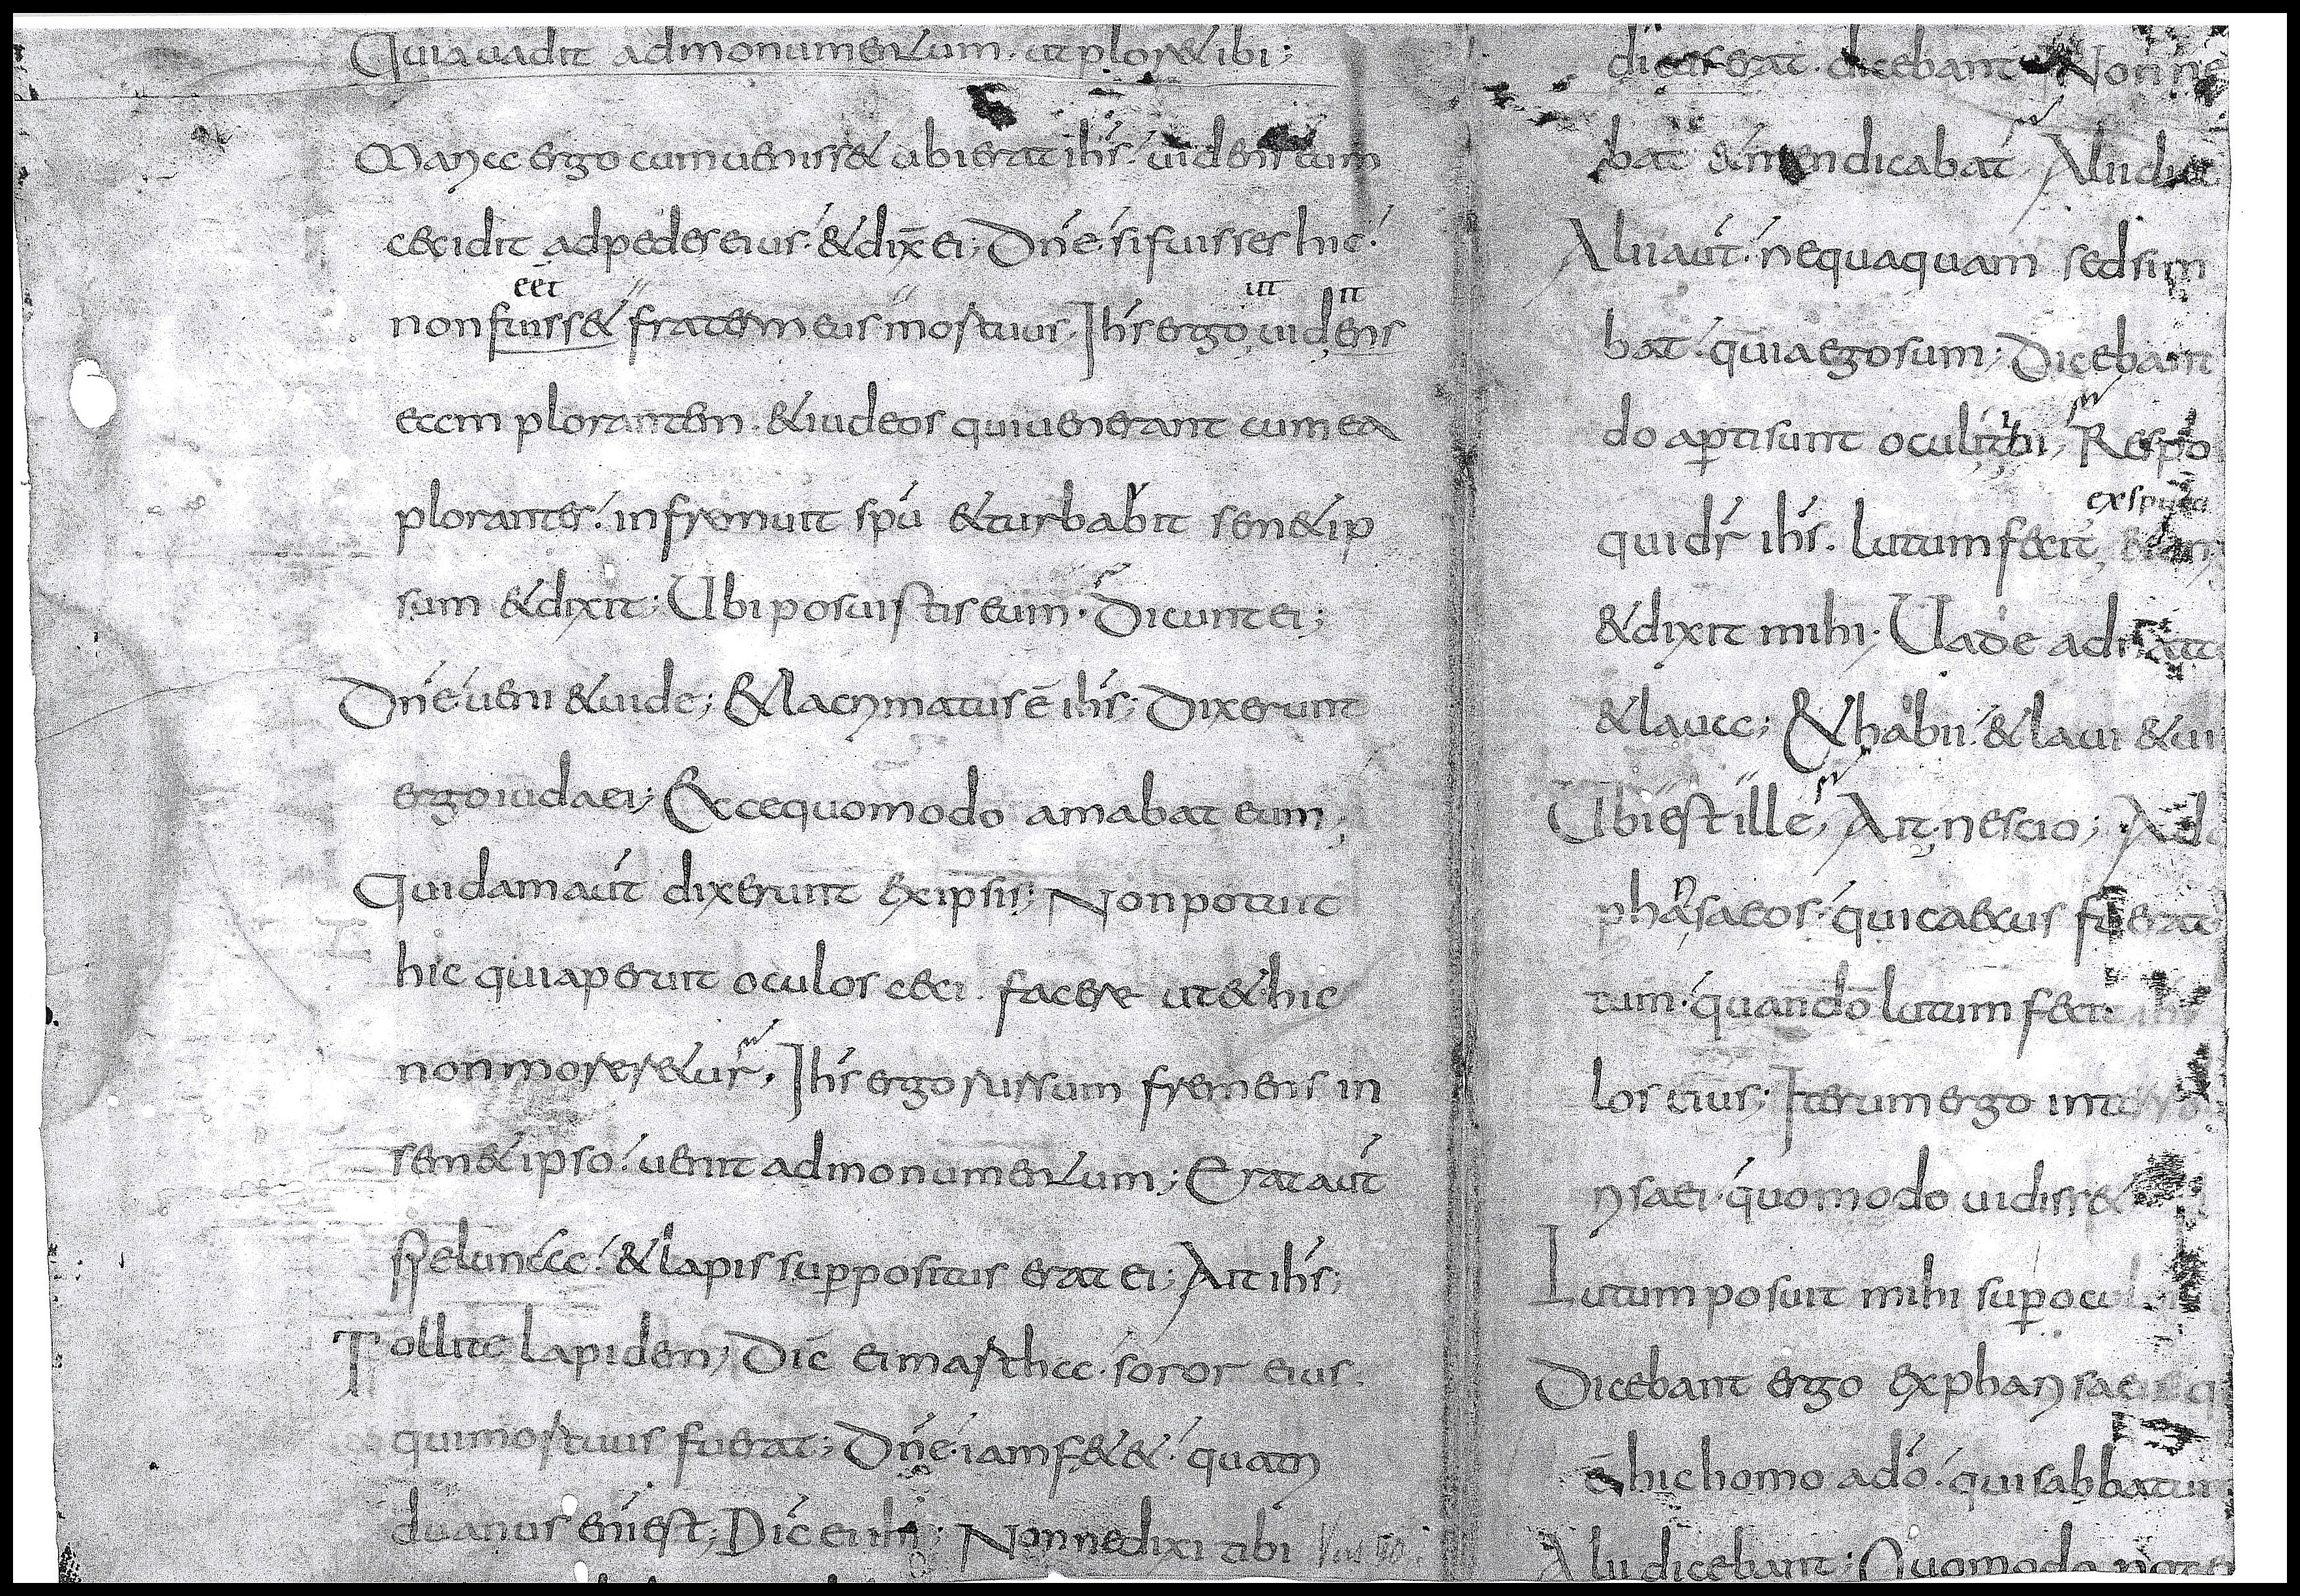 Quia uadit ad monumentum · ut ploret ibi;
Maria ergo cum uenisset ubi erat ihs · uidens eum
cecidit ad pedes eius · & dix̄ ei; Dn̄e · si fuisses hic ·
eēt
ut it
non fuisset frater meus mortuus · Ihs ergo uidens
eam plorantem · & iudeos qui uenerant cum ea
plorantes · infremuit spū & turbabit semetip
sum & dixit; Ubi posuistis eum · Dicunt ei;
Dn̄e ueni & uide; & lacrymatus ē ihs; Dixerunt
ergo iudaei; Ecce quomodo amabat eum;
Quidam aut dixerunt ex ipsis; Non potuit
hic qui aperuit oculos ceci · facere ut & hic
non moreretur · Ihs ergo rursum fremens in
semet ipso · uenit ad monumentum; Erat aut
spelunca · & lapis suppositus erat ei; Ait ihs;
Tollite lapidem; Dic̄ ei martha · soror eius ·
qui mortuus fuerat; Dn̄e · iam fetet · quatri
duanus eni est; Dic̄ ei ihs; Nonne dixi tibi
dicebant Nonne
bat & mendicabat · Alii
Alii aut · nequaquam sed sim
bat · quia ego sum; Dicebant
do aperti sunt oculi tibi; Respo
qui dr̄ ihs · lutum fecit
& dixit mihi · Uade ad
& laua; & habii · & laui & ui
Ubi est ille; Ait · nescio;
pharisaeos · qui caecus fuerat
tum · quando lutum fecit ihs
los eius; Iterum ergo interro
risaei · quomodo uidisset
Lutum posuit mihi sup ocul
Dicebant ergo ex pharisaeis q
ē hic homo a dō · qui sabbatum
Alii dicebant; Quomodo pot